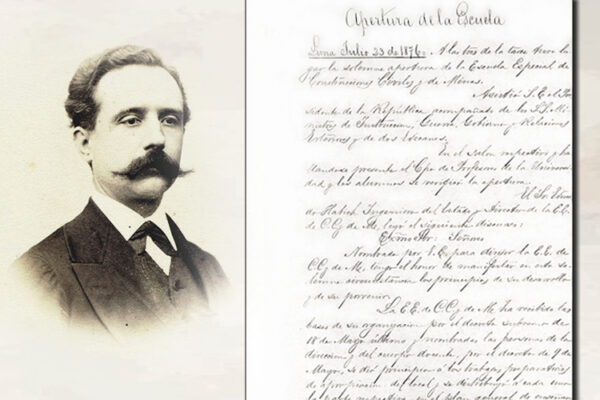 Apertura de la Escuela
Lima Julio 23 de 1876. A las tres de la tarde tuvo lu
gar la solemne apertura de la Escuela Especial de
Construcciones Civiles y de Minas.
Asistió S. E. el Pre
sidente de la República acompañado de los S.S. Mi
nistros de Instrucción, Guerra, Gobierno y Relaciones
Exteriores y de dos Edecanes.
En el salon respectivo y ha
llandose presente el Cpo. de Profesores de la Universi
dad y los alumnos se verificó la apertura.
El Sr. Eduar
do Habich Ingeniero del Estado y Director de la E.E.
de C.C. y de M. leyó el siguiente discurso:
Exmo. Sor. Señores
Nombrado por V. E. para dirijir la E.E. de
C.C. y de M. tengo el honor de manifestar en esta so
lemne circunstancia los principios de su desarrollo
y de su porvenir.
La E.E. de C.C. y de M. ha recibido las
bases de su organizacion por el decreto supremo de
18 de Mayo último y nombradas las personas de la
direccion y del cuerpo docente, por el decreto de 9 de
Mayo, se dió principio á los trabajos preparatorios
de apropiacion del local y se distribuyó á cada uno
la parte respectiva en el plan general de enseñan